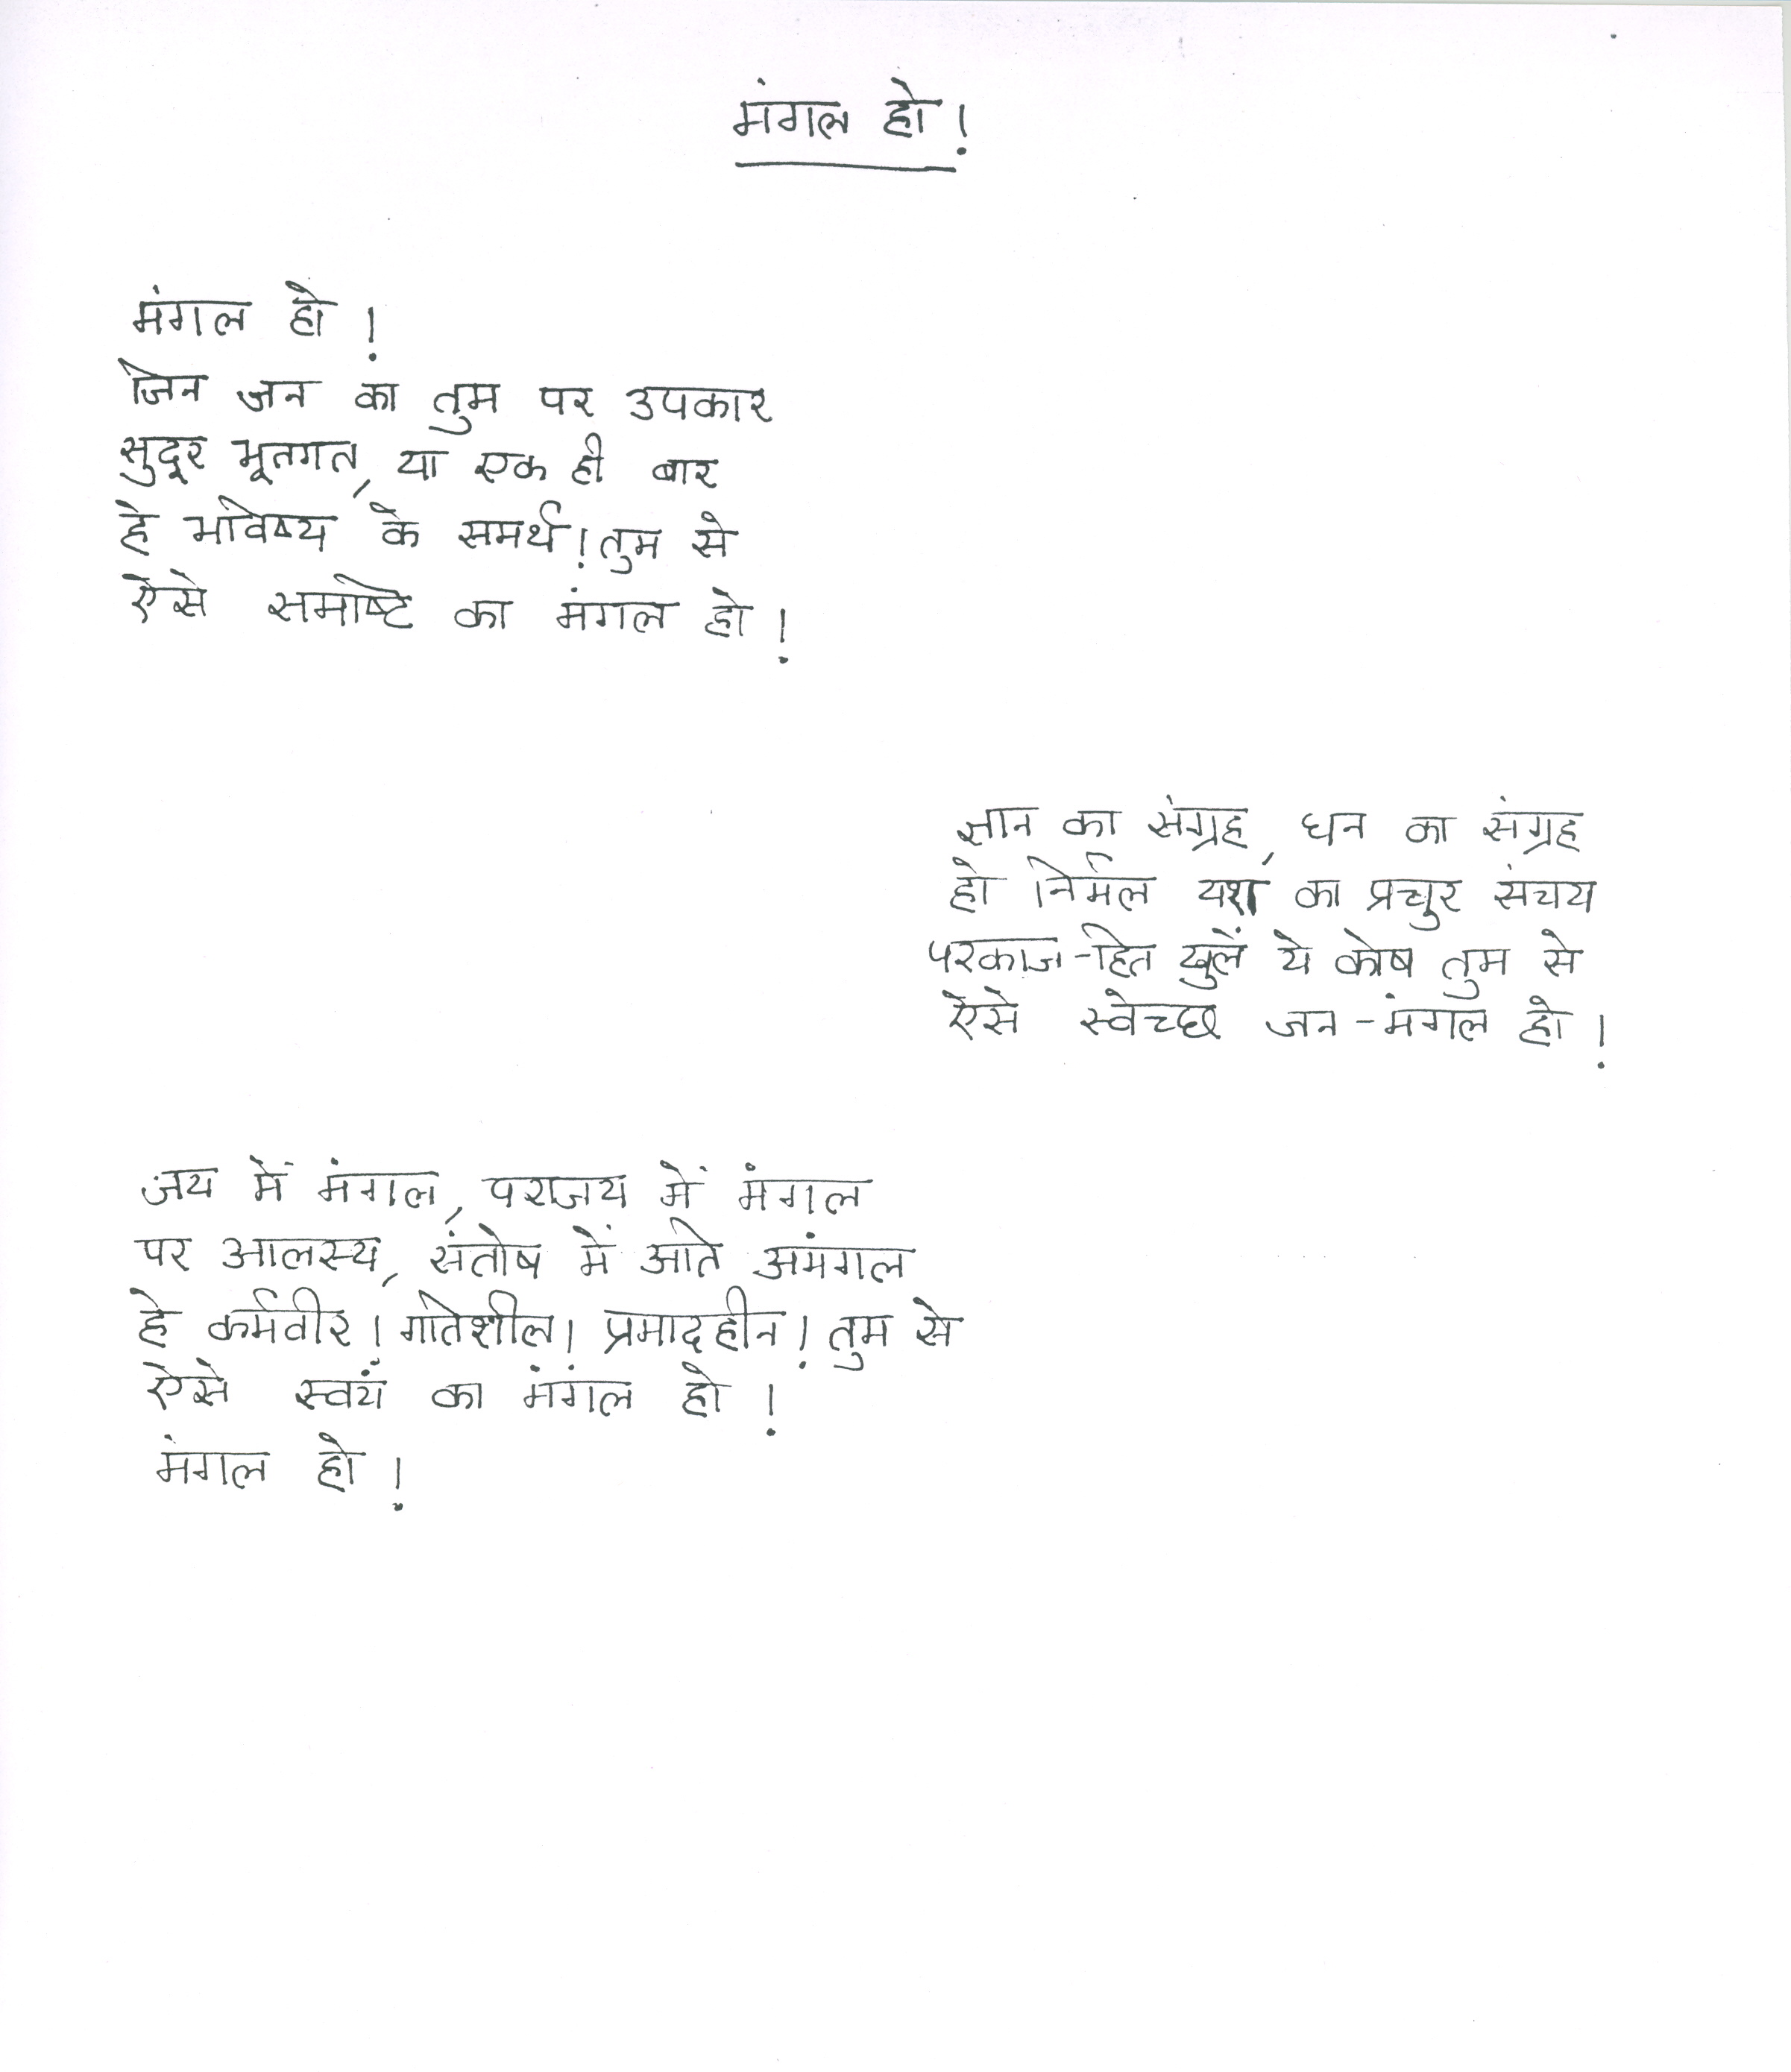 मंगल हो!
मंगल हो!
जिन जन का तुम पर उपकार
सुदूर भूतगत, या एक ही बार
हे भविष्य के समर्थ! तुम से
ऐसे समष्टि का मंगल हो!
ज्ञान का संग्रह, धन का संग्रह
हो निर्मल यश का प्रचुर संचय
परकाज-हित खुलें ये कोष तुम से
ऐसे स्वेच्छ जन-मंगल हो!
जय में मंगल, पराजय में मंगल
पर आलस्य, संतोष में अति अमंगल
हे कर्मवीर! गतिशील! प्रमादहीन! तुम से
ऐसे स्वयं का मंगल हो!
मंगल हो!